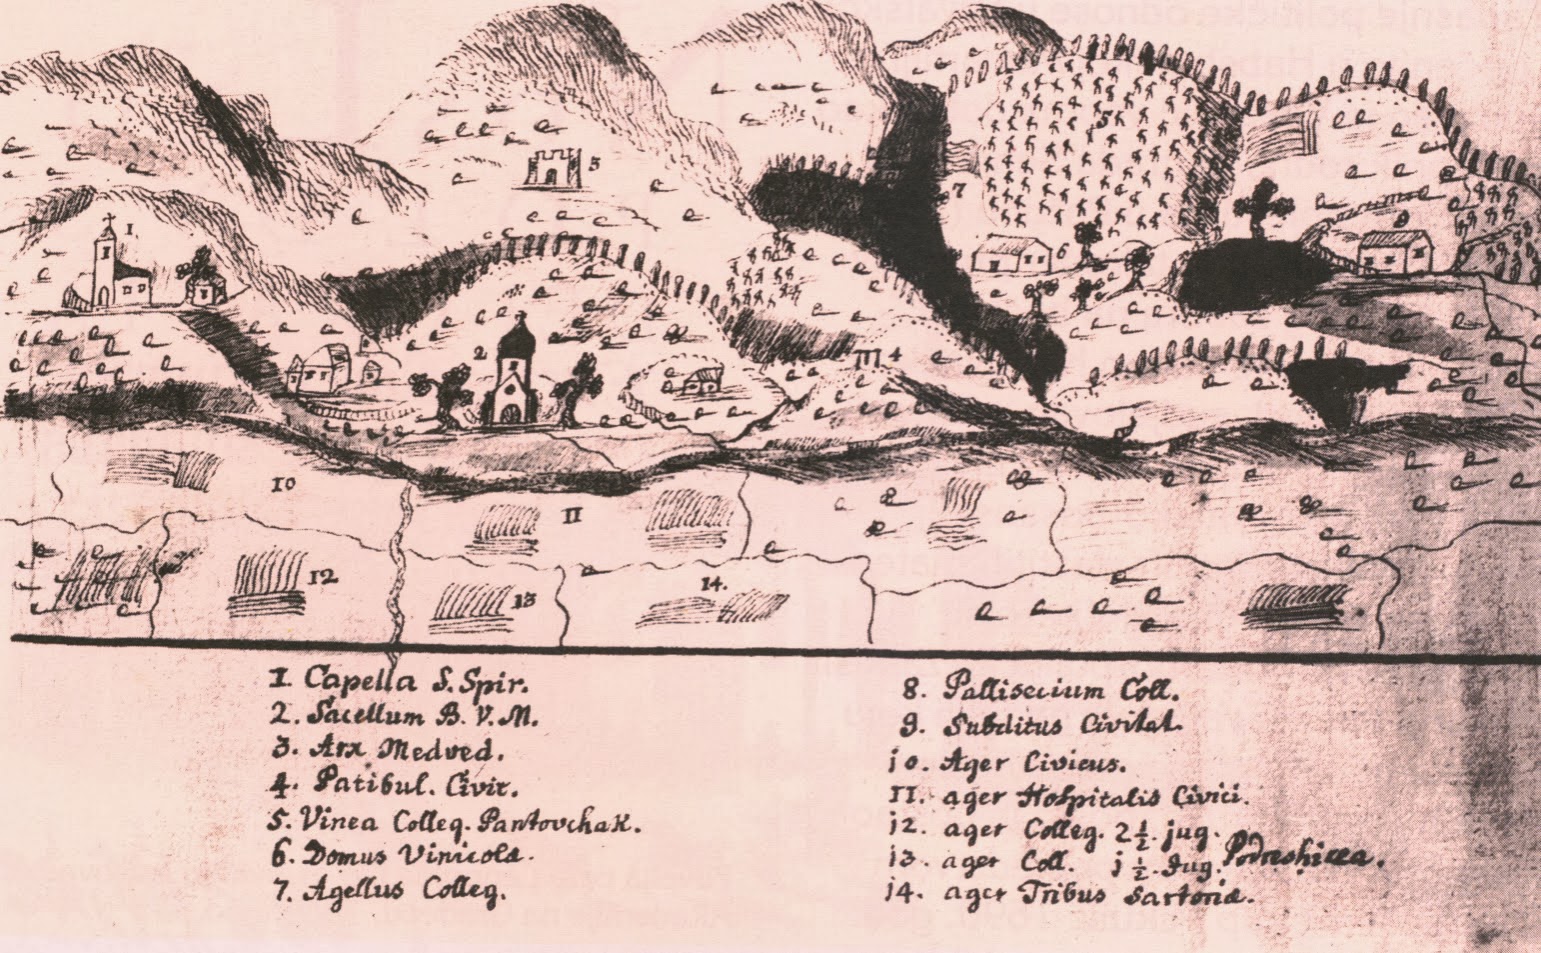 1.
5
5
7
6
9
2
4
10
11
12
13
14.
1. Capella S. Spir.
2. Sacellum B. V. M.
3. Arx Medved.
4. Patibul. Civit.
5. Vinea Colleg. Pantovchak.
6. Domus Vinicolæ.
7. Agellus Colleg.
8. Pallisecium Coll.
9. Subditus Civitat.
jo. Ager Civicus.
11. ager Hospitalis Civici.
j2. ager Colleg. 2½. jug.
j3. ager Coll. j½. Jug. Podreshicea.
j4. ager Tribus Sartoriæ.